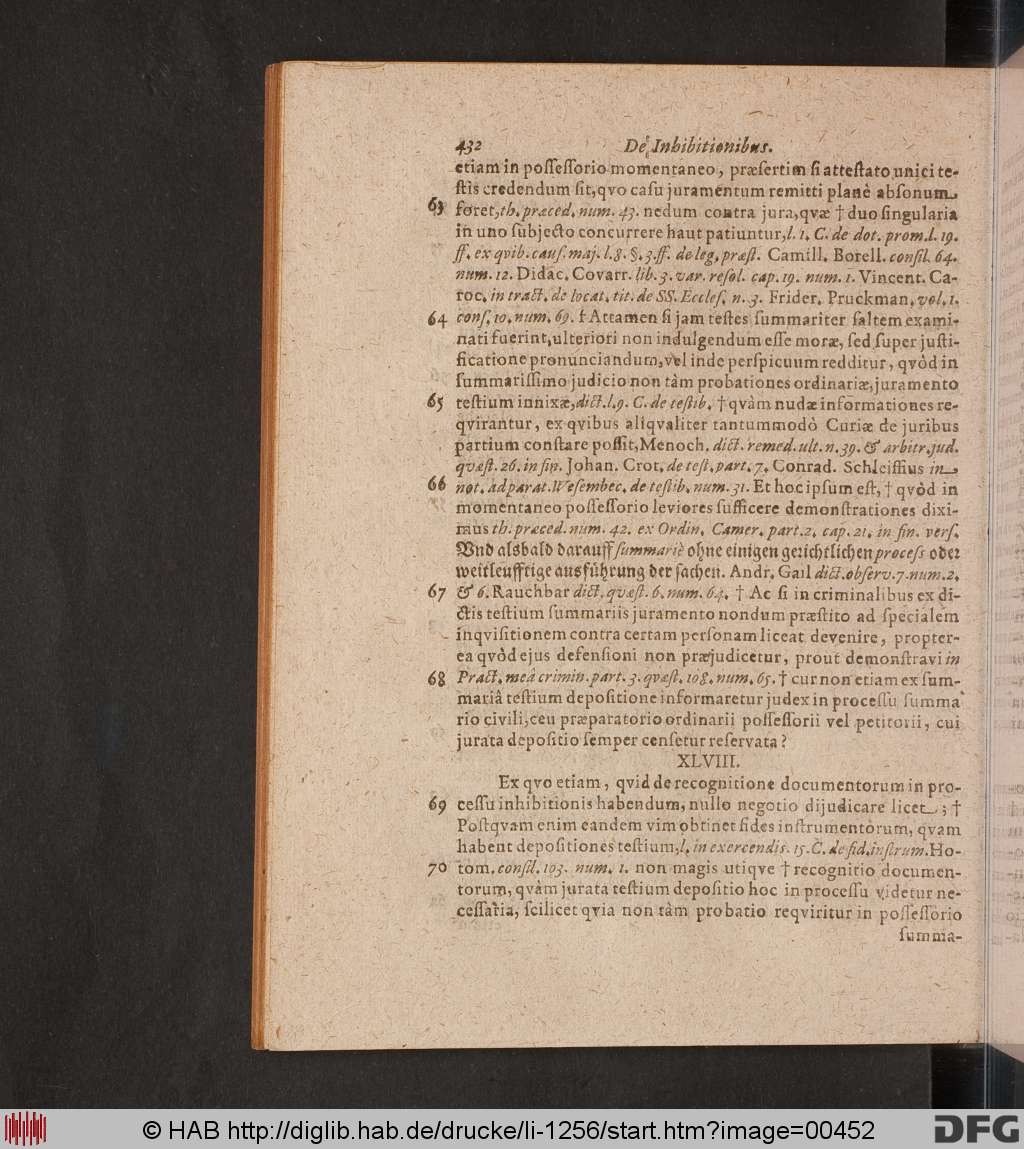 432 De Inhibitionibus.
etiam in possessorio momentaneo, præsertim si attestato unici te-
stis credendum sit, qvo casu juramentum remitti planè absonum
63 foret, th. præced. num. 43. nedum contra jura, qvæ † duo singularia
in uno subjecto concurrere haut patiuntur, l. 1. C. de dot. prom. l. 19.
ff. ex qvib. caus. maj. l. 8. §. 3. ff. de leg. præst. Camill. Borell. consil. 64.
num. 12. Didac. Covarr. lib. 3. var. resol. cap. 19. num. 1. Vincent. Ca-
roc. in tract. de locat. tit. de SS. Eccles. n. 3. Frider. Pruckman. vol. 1.
64 cons. 10. num. 69. † Attamen si jam testes summariter saltem exami-
nati fuerint, ulteriori non indulgendum esse moræ, sed super justi-
ficatione pronunciandum, vel inde perspicuum redditur, qvòd in
summarissimo judicio non tàm probationes ordinariæ, juramento
65 testium innixæ, dict. l. 9. C. de testib. † qvàm nudæ informationes re-
qvirantur, ex qvibus aliqvaliter tantummodò Curiæ de juribus
partium constare possit, Menoch. dict. remed. ult. n. 39. & arbitr. jud.
qvæst. 26. in fin. Johan. Crot. de test. part. 7. Conrad. Schleiffius in
66 not. ad parat. Wesembec. de testib. num. 31. Et hoc ipsum est, † qvòd in
momentaneo possessorio leviores sufficere demonstrationes dixi-
mus th. præced. num. 42. ex Ordin. Camer. part. 2. cap. 21. in fin. vers.
Und alsbald darauff summariè ohne einigen gerichtlichen process oder
weitleufftige ausführung der sachen. Andr. Gail dict. observ. 7. num. 2.
67 & 6. Rauchbar dict. qvæst. 6. num. 64. † Ac si in criminalibus ex di-
ctis testium summariis juramento nondum præstito ad specialem
inqvisitionem contra certam personam liceat devenire, propter-
ea qvòd ejus defensioni non præjudicetur, prout demonstravi in
68 Pract. meâ crimin. part. 3. qvæst. 108. num. 65. † cur non etiam ex sum-
mariâ testium depositione informaretur judex in processu summa
rio civili, ceu præparatorio ordinarii possessorii vel petitorii, cui
jurata depositio semper censetur reservata?
XLVIII.
Ex qvo etiam, qvid de recognitione documentorum in pro-
69 cessu inhibitionis habendum, nullo negotio dijudicare licet; †
Postqvam enim eandem vim obtinet fides instrumentorum, qvam
habent depositiones testium, l. in exercendis. 15. C. de fid. instrum. Ho-
70 tom. consil. 103. num. 1. non magis utiqve † recognitio documen-
torum, qvàm jurata testium depositio hoc in processu videtur ne-
cessaria, scilicet qvia non tàm probatio reqviritur in possessorio
summa-
© HAB http://diglib.hab.de/drucke/li-1256/start.htm?image=00452
DFG